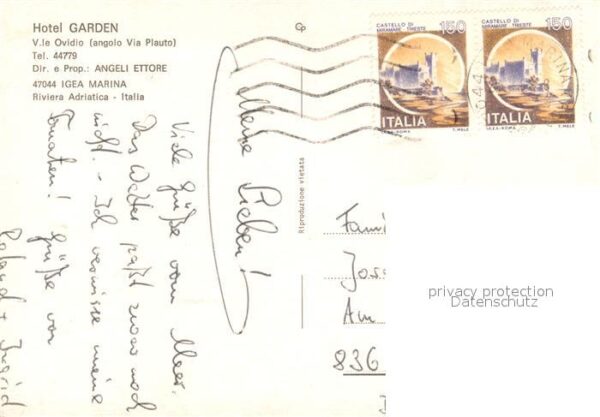 Hotel GARDEN
V.le Ovidio (angolo Via Plauto)
Tel. 44779
Dir. e Prop.: ANGELI ETTORE
47044 IGEA MARINA
Riviera Adriatica - Italia
Cp
Riproduzione vietata
CASTELLO DI
MIRAMARE - TRIESTE
150
ITALIA
I.P.Z.S. - ROMA
T. MELE
CASTELLO DI
MIRAMARE - TRIESTE
150
ITALIA
I.P.Z.S. - ROMA
T. MELE
Meine Lieben!
Viele Grüße vom Meer.
Das Wetter paßt zwar noch
nicht - Ich vermisse meine
Tomaten! Grüße von
Roland + Ingrid
Fami
Jos
Am
836
privacy protection
Datenschutz